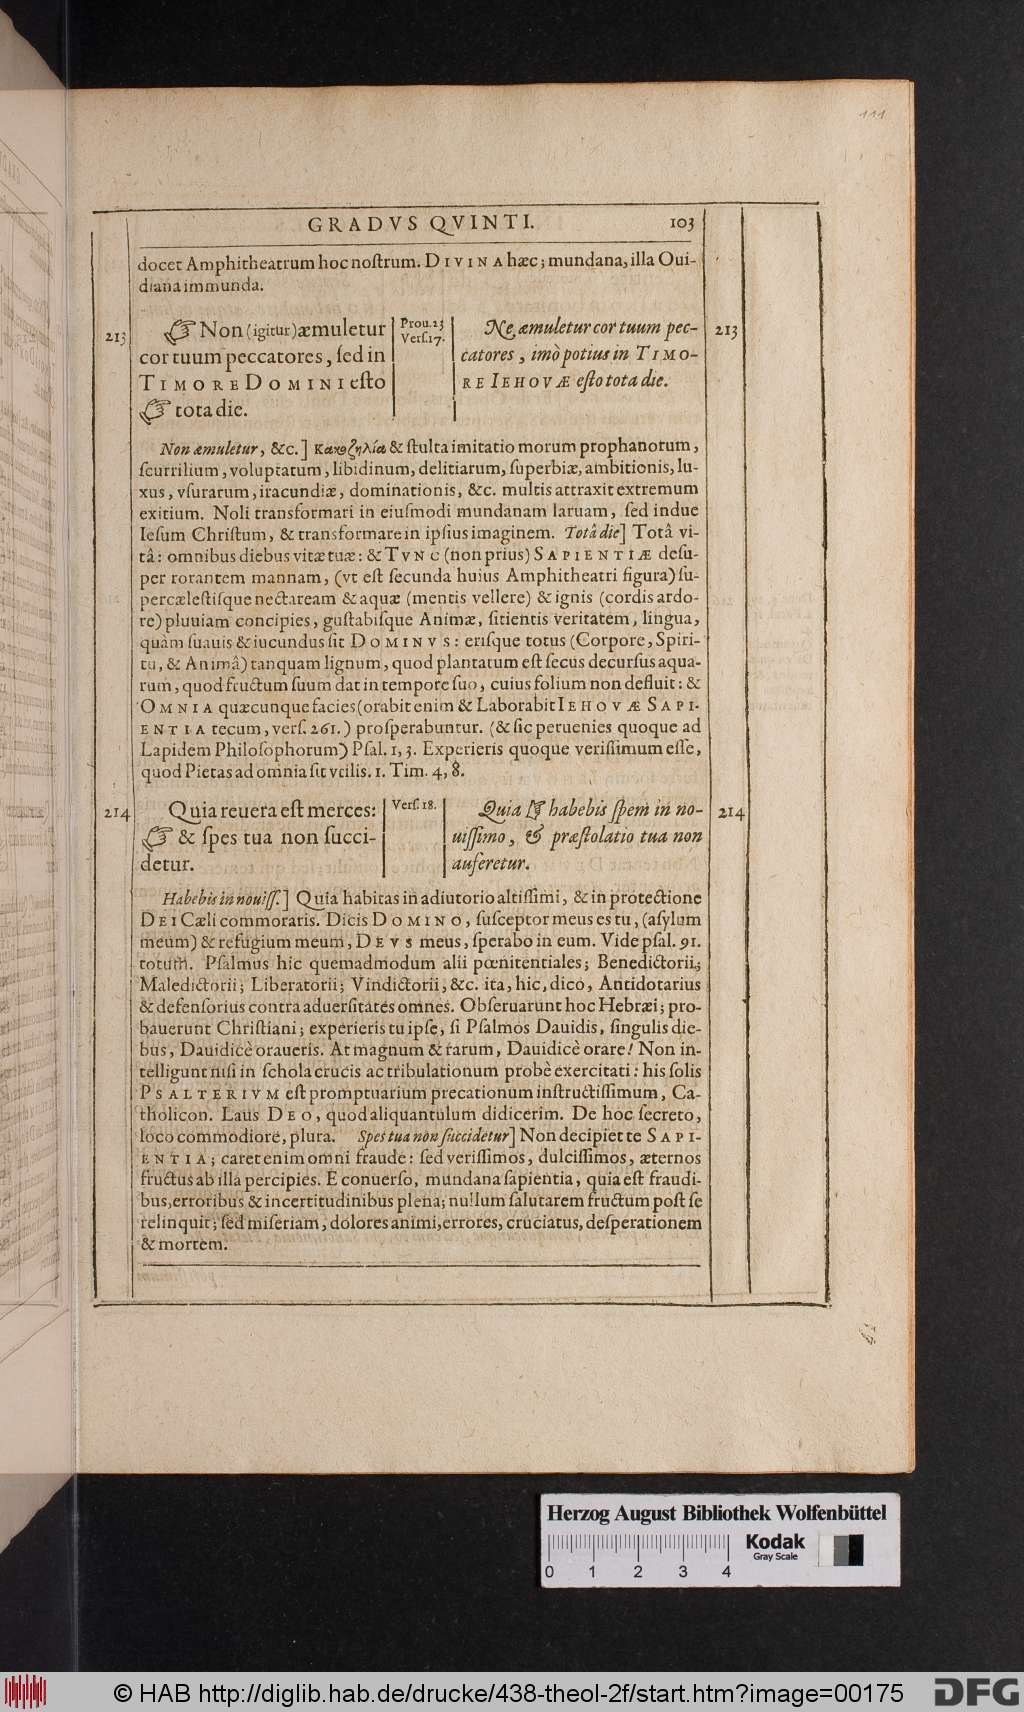 111
GRADVS QVINTI. 103
docet Amphitheatrum hoc nostrum. DIVINA hæc; mundana, illa Oui-
diana immunda.
213
☞ Non (igitur) æmuletur
cor tuum peccatores, sed in
TIMORE DOMINI esto
☞ tota die.
Prou. 23
Vers. 17.
Ne æmuletur cor tuum pec-
catores, imò potius in TIMO-
RE IEHOVÆ esto tota die.
213
Non æmuletur, &c.] Κακοζηλία & stulta imitatio morum prophanorum,
scurrilium, voluptatum, libidinum, delitiarum, superbiæ, ambitionis, lu-
xus, vsurarum, iracundiæ, dominationis, &c. multis attraxit extremum
exitium. Noli transformari in eiusmodi mundanam laruam, sed indue
Iesum Christum, & transformare in ipsius imaginem. Totâ die] Totâ vi-
tâ: omnibus diebus vitæ tuæ: & TVNC (non prius) SAPIENTIÆ desu-
per rorantem mannam, (vt est secunda huius Amphitheatri figura) su-
percælestisque nectaream & aquæ (mentis vellere) & ignis (cordis ardo-
re) pluuiam concipies, gustabisque Animæ, sitientis veritatem, lingua,
quàm suauis & iucundus sit DOMINVS: erisque totus (Corpore, Spiri-
tu, & Animâ) tanquam lignum, quod plantatum est secus decursus aqua-
rum, quod fructum suum dat in tempore suo, cuius folium non defluit: &
OMNIA quæcunque facies (orabit enim & Laborabit IEHOVÆ SAPI-
ENTIA tecum, vers. 261.) prosperabuntur. (& sic peruenies quoque ad
Lapidem Philosophorum) Psal. 1, 3. Experieris quoque verissimum esse,
quod Pietas ad omnia sit vtilis. 1. Tim. 4, 8.
214
Quia reuera est merces:
☞ & spes tua non succi-
detur.
Vers. 18.
Quia ☞ habebis spem in no-
uissimo, & præstolatio tua non
auferetur.
214
Habebis in nouiss.] Quia habitas in adiutorio altissimi, & in protectione
DEI Cæli commoraris. Dicis DOMINO, susceptor meus es tu, (asylum
meum) & refugium meum, DEVS meus, sperabo in eum. Vide psal. 91.
totum. Psalmus hic quemadmodum alii pœnitentiales; Benedictorii;
Maledictorii; Liberatorii; Vindictorii, &c. ita, hic, dico, Antidotarius
& defensorius contra aduersitates omnes. Obseruarunt hoc Hebræi; pro-
bauerunt Christiani; experieris tu ipse, si Psalmos Dauidis, singulis die-
bus, Dauidicè oraueris. At magnum & rarum, Dauidicè orare! Non in-
telligunt nisi in schola crucis ac tribulationum probè exercitati: his solis
PSALTERIVM est promptuarium precationum instructissimum, Ca-
tholicon. Laus DEO, quod aliquantulum didicerim. De hoc secreto,
loco commodiore, plura. Spes tua non succidetur] Non decipiet te SAPI-
ENTIA; caret enim omni fraude: sed verissimos, dulcissimos, æternos
fructus ab illa percipies. E conuerso, mundana sapientia, quia est fraudi-
bus, erroribus & incertitudinibus plena; nullum salutarem fructum post se
relinquit; sed miseriam, dolores animi, errores, cruciatus, desperationem
& mortem.
Herzog August Bibliothek Wolfenbüttel
Kodak
Gray Scale
0 1 2 3 4
© HAB http://diglib.hab.de/drucke/438-theol-2f/start.htm?image=00175
DFG